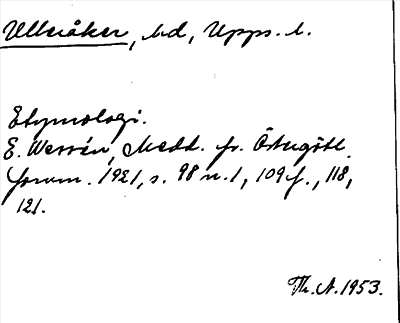 Ulleråker, hd, Upps. l.
Etymologi.
E. Wessén, Medd. fr. Östergötl.
fornm. 1921, s. 98 n. 1, 109 f., 118,
121.
Th. A. 1953.